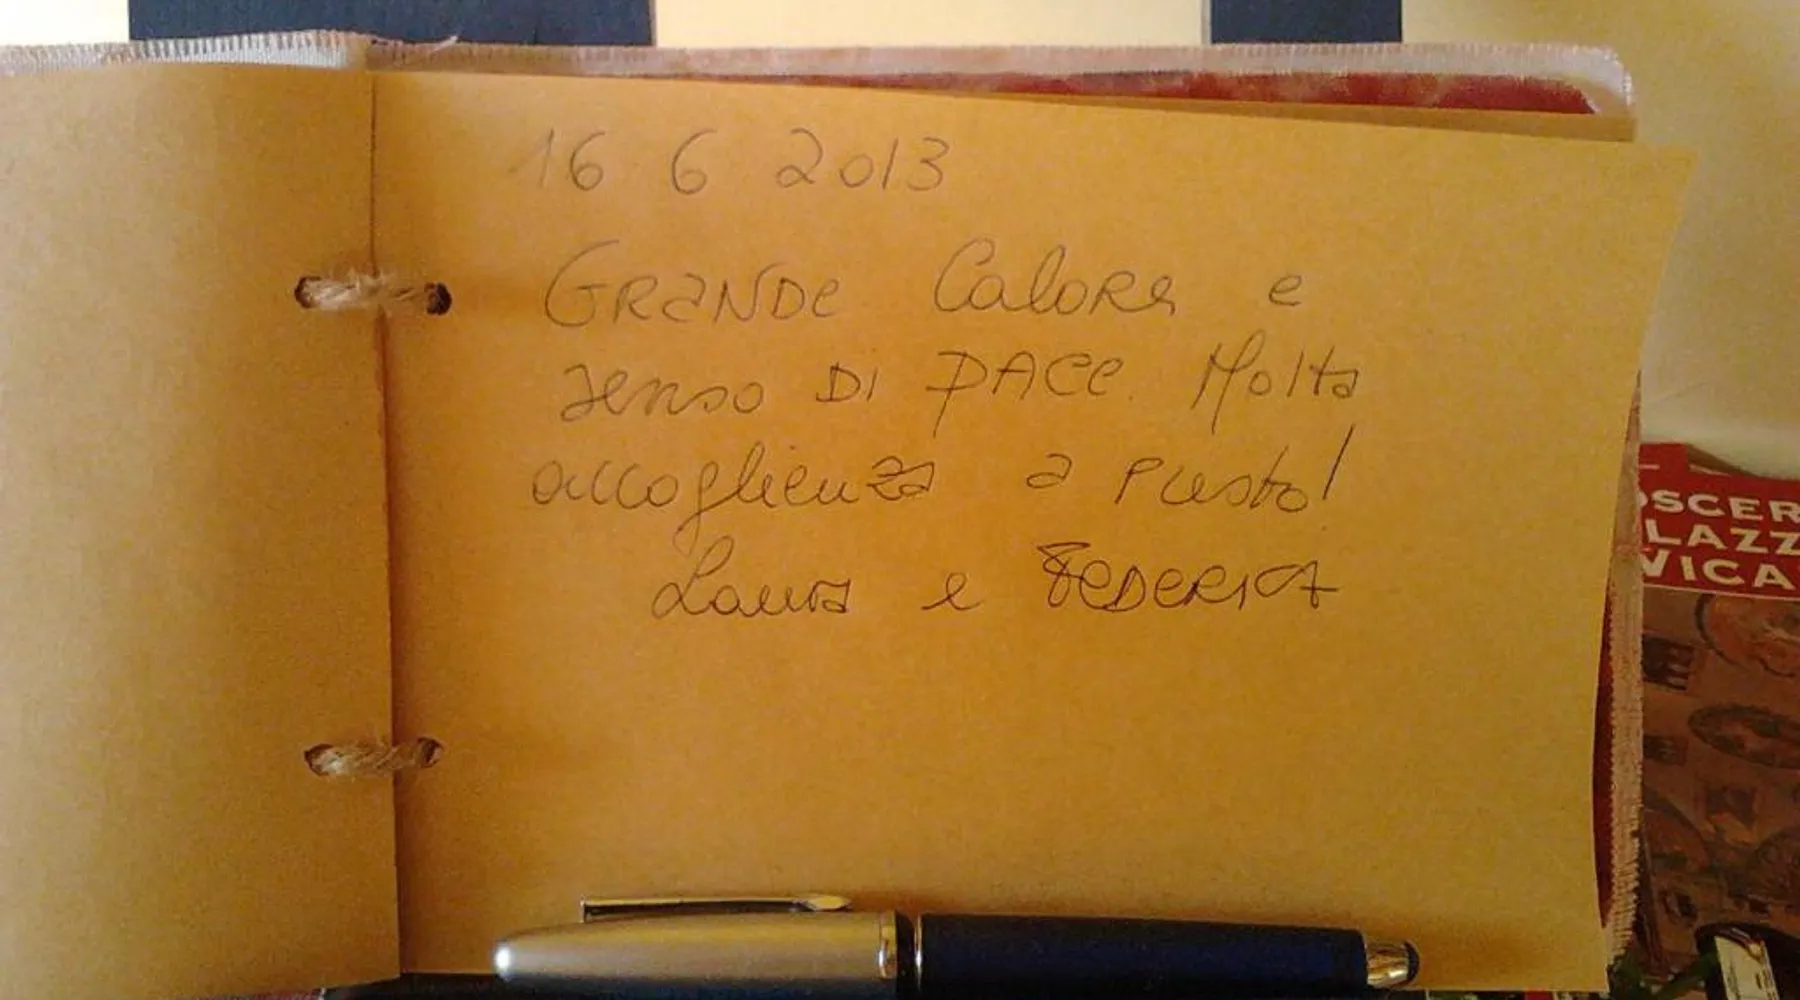 16 6 2013
GRANDe CaloRe e
senso DI PACe. Molta
accoglienza a presto!
Laura e FeDERICA
OSCER
LAZZ
VICA